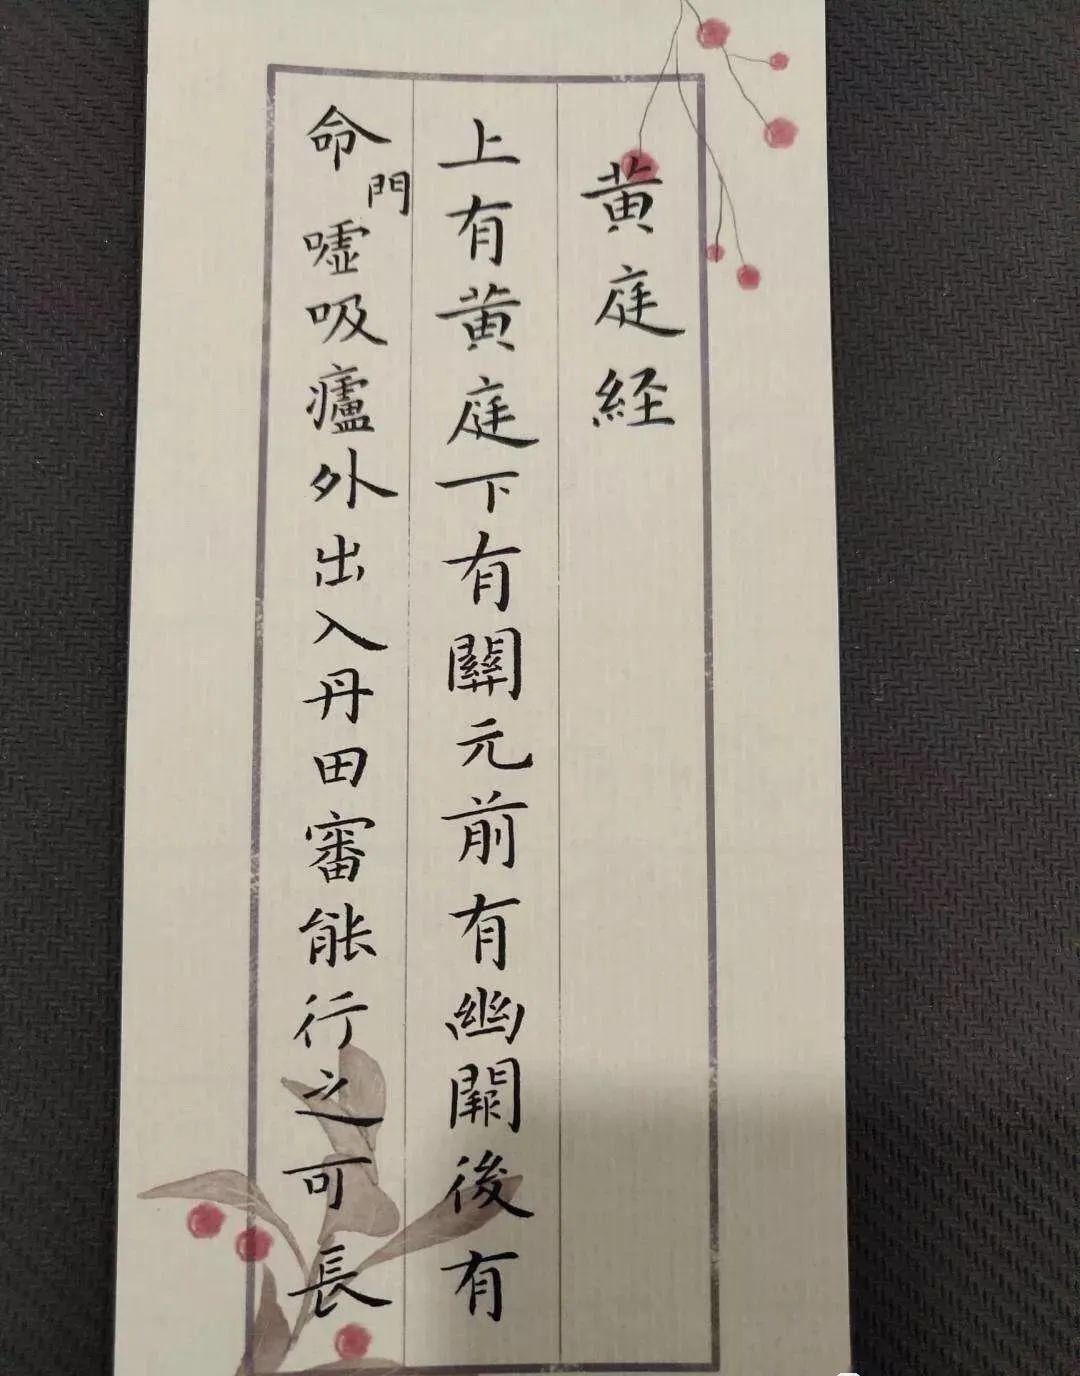 黄庭経
上有黄庭下有關元前有幽闕後有
命門嘘吸廬外出入丹田審能行之可長